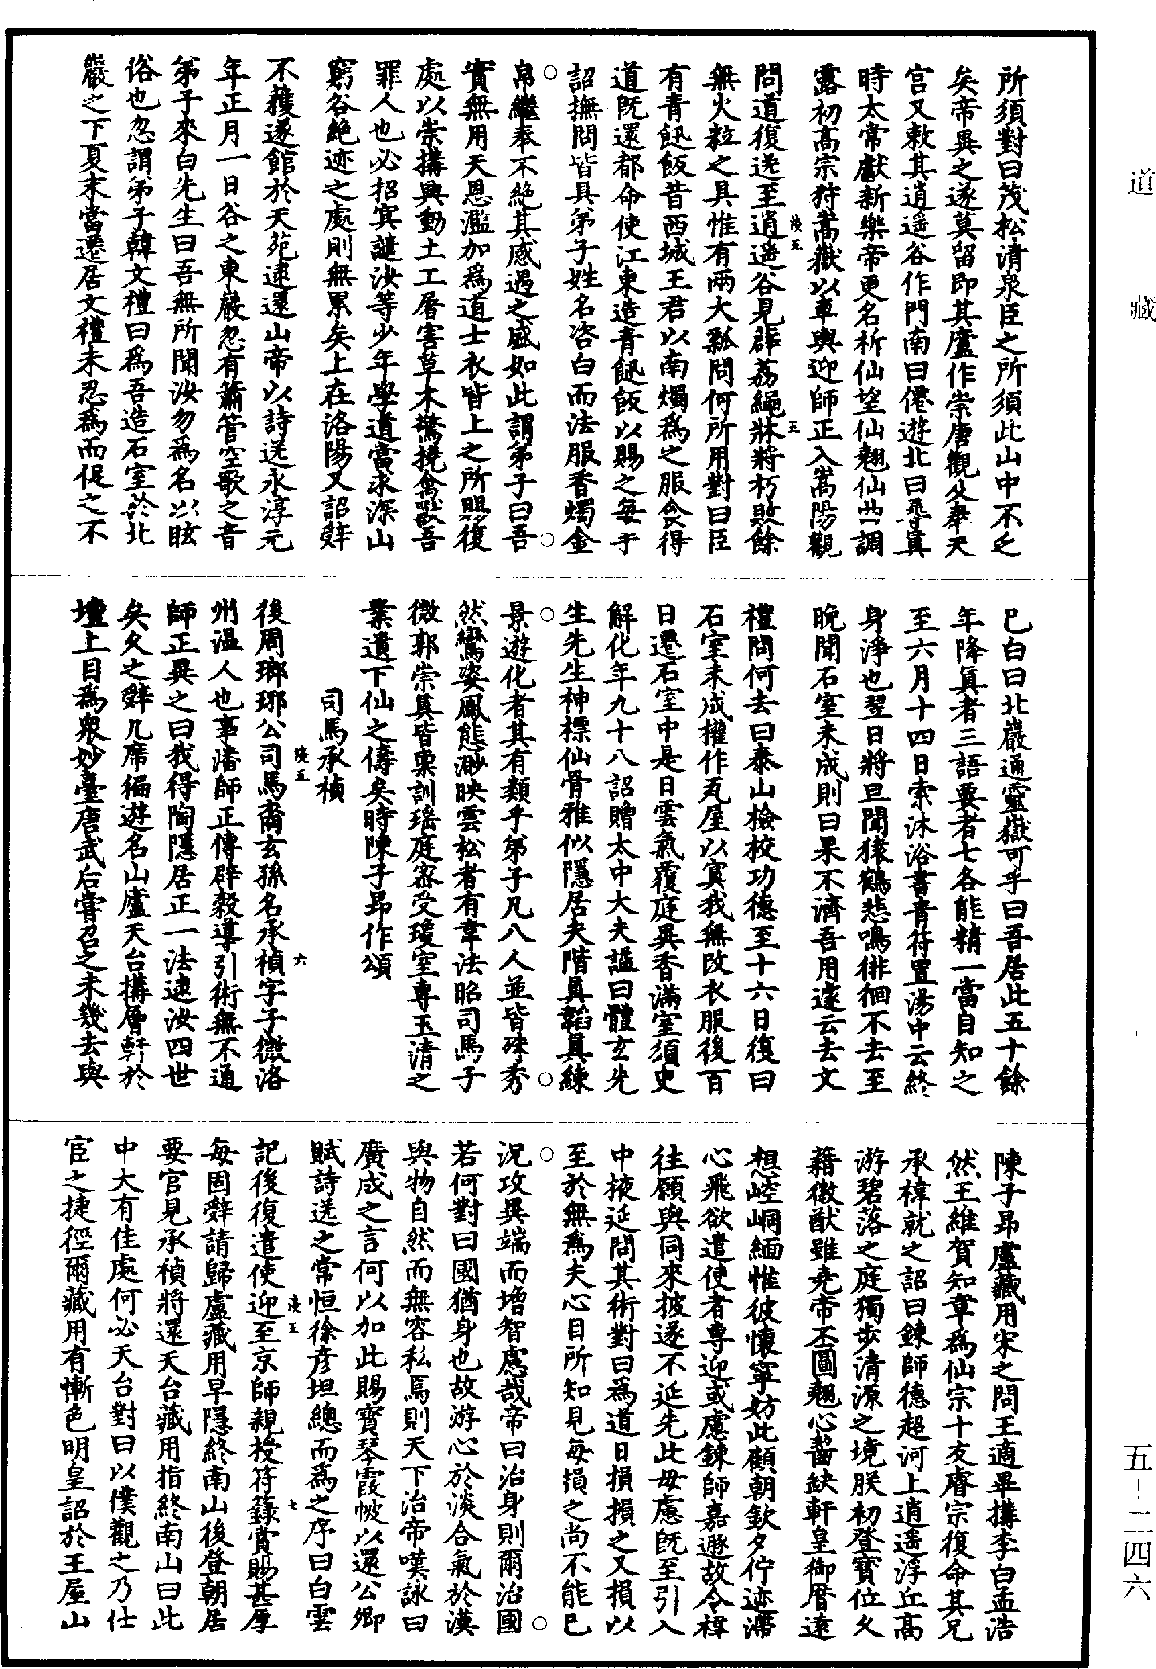 道藏
所須對曰茂松清泉臣之所須此山中不乏
矣帝異之遂莫留即其廬作崇唐觀父奉天
宫又敕其逍遙谷作門南曰僊遊北曰尋真
時太常獻新樂帝更名祈仙望仙翹仙曲調
露初高宗狩嵩嶽以車輿迎師正入嵩陽觀
問道復送至逍遙谷見薜荔繩牀將朽敗餘
無火粒之具惟有兩大瓢問何所用對曰臣
有青飢飯昔西城王君以南燭爲之服食得
道既還都命使江東造青飢飯以賜之每于
詔撫問皆具弟子姓名咨白而法服香燭金
帛繼奉不絶其感遇之盛如此謂弟子曰吾
實無用天恩濫加爲道士衣皆上之所賜復
處以崇搆興動土工層害草木驚撓禽獸吾
罪人也必招冥譴汝等少年學道當求深山
窮谷絶迹之處則無累矣上在洛陽又詔辭
不獲遂館於天苑逮還山帝以詩送永淳元
年正月一日谷之東巖忽有簫管空歌之音
弟子來白先生曰吾無所聞汝勿爲名以眩
俗也忽謂弟子韓文禮曰爲吾造石室於北
巖之下夏末當遷居文禮未忍爲而促之不
已白曰北巖通靈嶽可乎曰吾居此五十餘
年降真者三語要者七各能精一當自知之
至六月十四日索沐浴書青符置湯中云終
身淨也翌日將旦聞猿鶴悲鳴徘徊不去至
晚聞石室未成則曰果不濟吾用遽云去文
禮問何去曰泰山檢校功德至十六日復曰
石室未成權作瓦屋以寘我無改衣服後百
日遷石室中是日雲氣覆庭異香滿室須臾
解化年九十八詔贈太中大夫謚曰體玄先
生先生神標仙骨雅似隱居夫階真韜真練
景遊化者其有類乎弟子凡八人並皆殊秀
然鸞姿鳳態渺映雲松者有韋法昭司馬子
微郭崇真皆稟訓瑤庭密受瓊室專玉清之
業遺下仙之儔矣時陳子昂作頌
司馬承禎
後周瑯琊公司馬裔玄孫名承禎字子微洛
州温人也事潘師正傳辟穀導引術無不通
師正異之曰我得陶隱居正一法逮汝四世
矣久之辭几席徧遊名山廬天台搆層軒於
壇上目爲衆妙臺唐武后嘗召之未幾去與
陳子昂盧藏用宋之問王適畢搆李白孟浩
然王維賀知章爲仙宗十友睿宗復命其兄
承禕就之詔曰鍊師德超河上逍遥浮丘高
游碧落之庭獨步清源之境朕初登寶位久
藉徽猷雖堯帝丕圖翹心齧缺軒皇御曆遠
想崆峒緬惟彼懷寧妨此顧朝欽夕佇迹滯
心飛欲遣使者專迎或慮鍊師嘉遯故令禕
往願與同來披遂不延先此毋慮既至引入
中掖延問其術對曰爲道日損損之又損以
至於無爲夫心目所知見每損之尚不能已
況攻異端而增智慮哉帝曰治身則爾治國
若何對曰國猶身也故游心於淡合氣於漠
與物自然而無容私焉則天下治帝嘆詠曰
廣成之言何以加此賜寶琴霞帔以還公卿
賦詩送之常恒徐彦坦總而爲之序曰白雲
記後復遣使迎至京師親授符籙賞賜甚厚
每固辭請歸盧藏用早隱終南山後登朝居
要官見承禎將還天台藏用指終南山曰此
中大有佳處何必天台對曰以僕觀之乃仕
宦之捷徑爾藏用有慚色明皇詔於王屋山
五－二四六